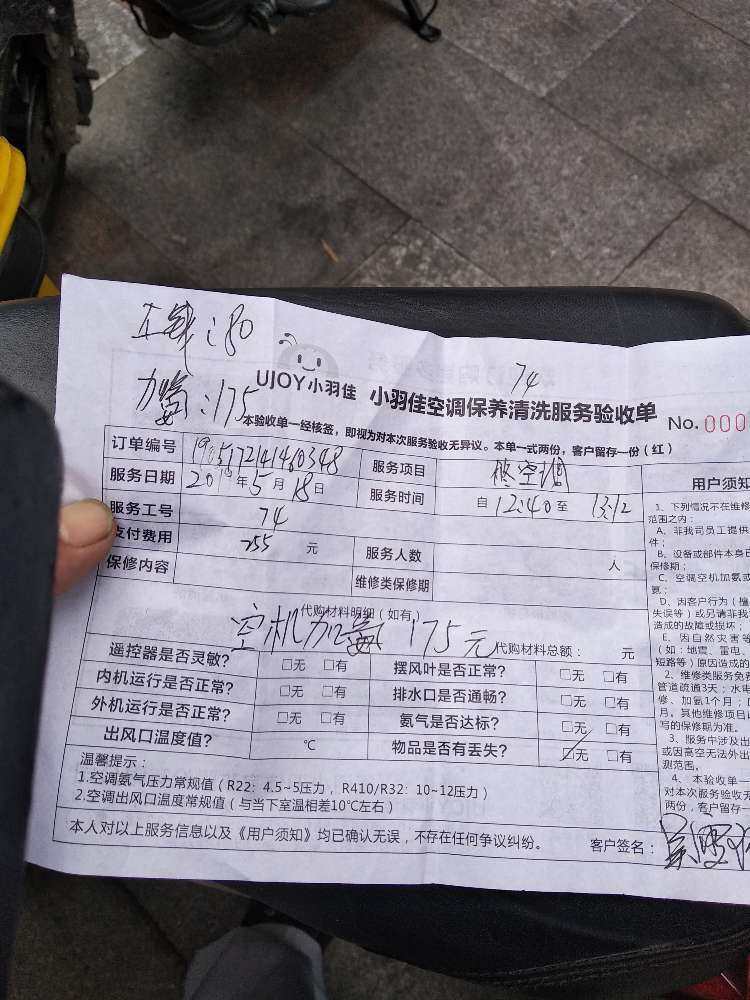 在线:80
加氨:175
74
UJOY小羽佳 小羽佳空调保养清洗服务验收单 No.000
本验收单一经核签，即视为对本次服务验收无异议。本单一式两份，客户留存一份（红）
订单编号 服务项目 修空调
服务日期 2019年5月18日 服务时间 自12:40至13:12
服务工号 74
支付费用 255 元 服务人数 人
保修内容 维修类保修期
代购材料明细（如有）
空机加氨 175元 代购材料总额： 元
遥控器是否灵敏? □无 □有 摆风叶是否正常? □无 □有
内机运行是否正常? □无 □有 排水口是否通畅? □无 □有
外机运行是否正常? □无 □有 氨气是否达标? □无 □有
出风口温度值? ℃ 物品是否有丢失? ☑无 □有
温馨提示：
1.空调氨气压力常规值（R22: 4.5~5压力，R410/R32: 10~12压力）
2.空调出风口温度常规值（与当下室温相差10℃左右）
本人对以上服务信息以及《用户须知》均已确认无误，不存在任何争议纠纷。 客户签名：
用户须知
1、下列情况不在维修
范围之内：
A、非我司员工提供
件；
B、设备或部件本身已
保修期；
C、空调空机加氨或
氨；
D、因客户行为（擅
失误等）或另请非我
造成的故障或损坏；
E、因自然灾害等
（如：地震、雷电、
短路等）原因造成的
2、维修类服务免费
管道疏通3天；水电
修、加氨1个月；
月。其他维修项目
写的保修期为准。
3、服务中涉及出
或因高空无法外出
测范围。
4、本验收单一
对本次服务验收无
两份，客户留存一